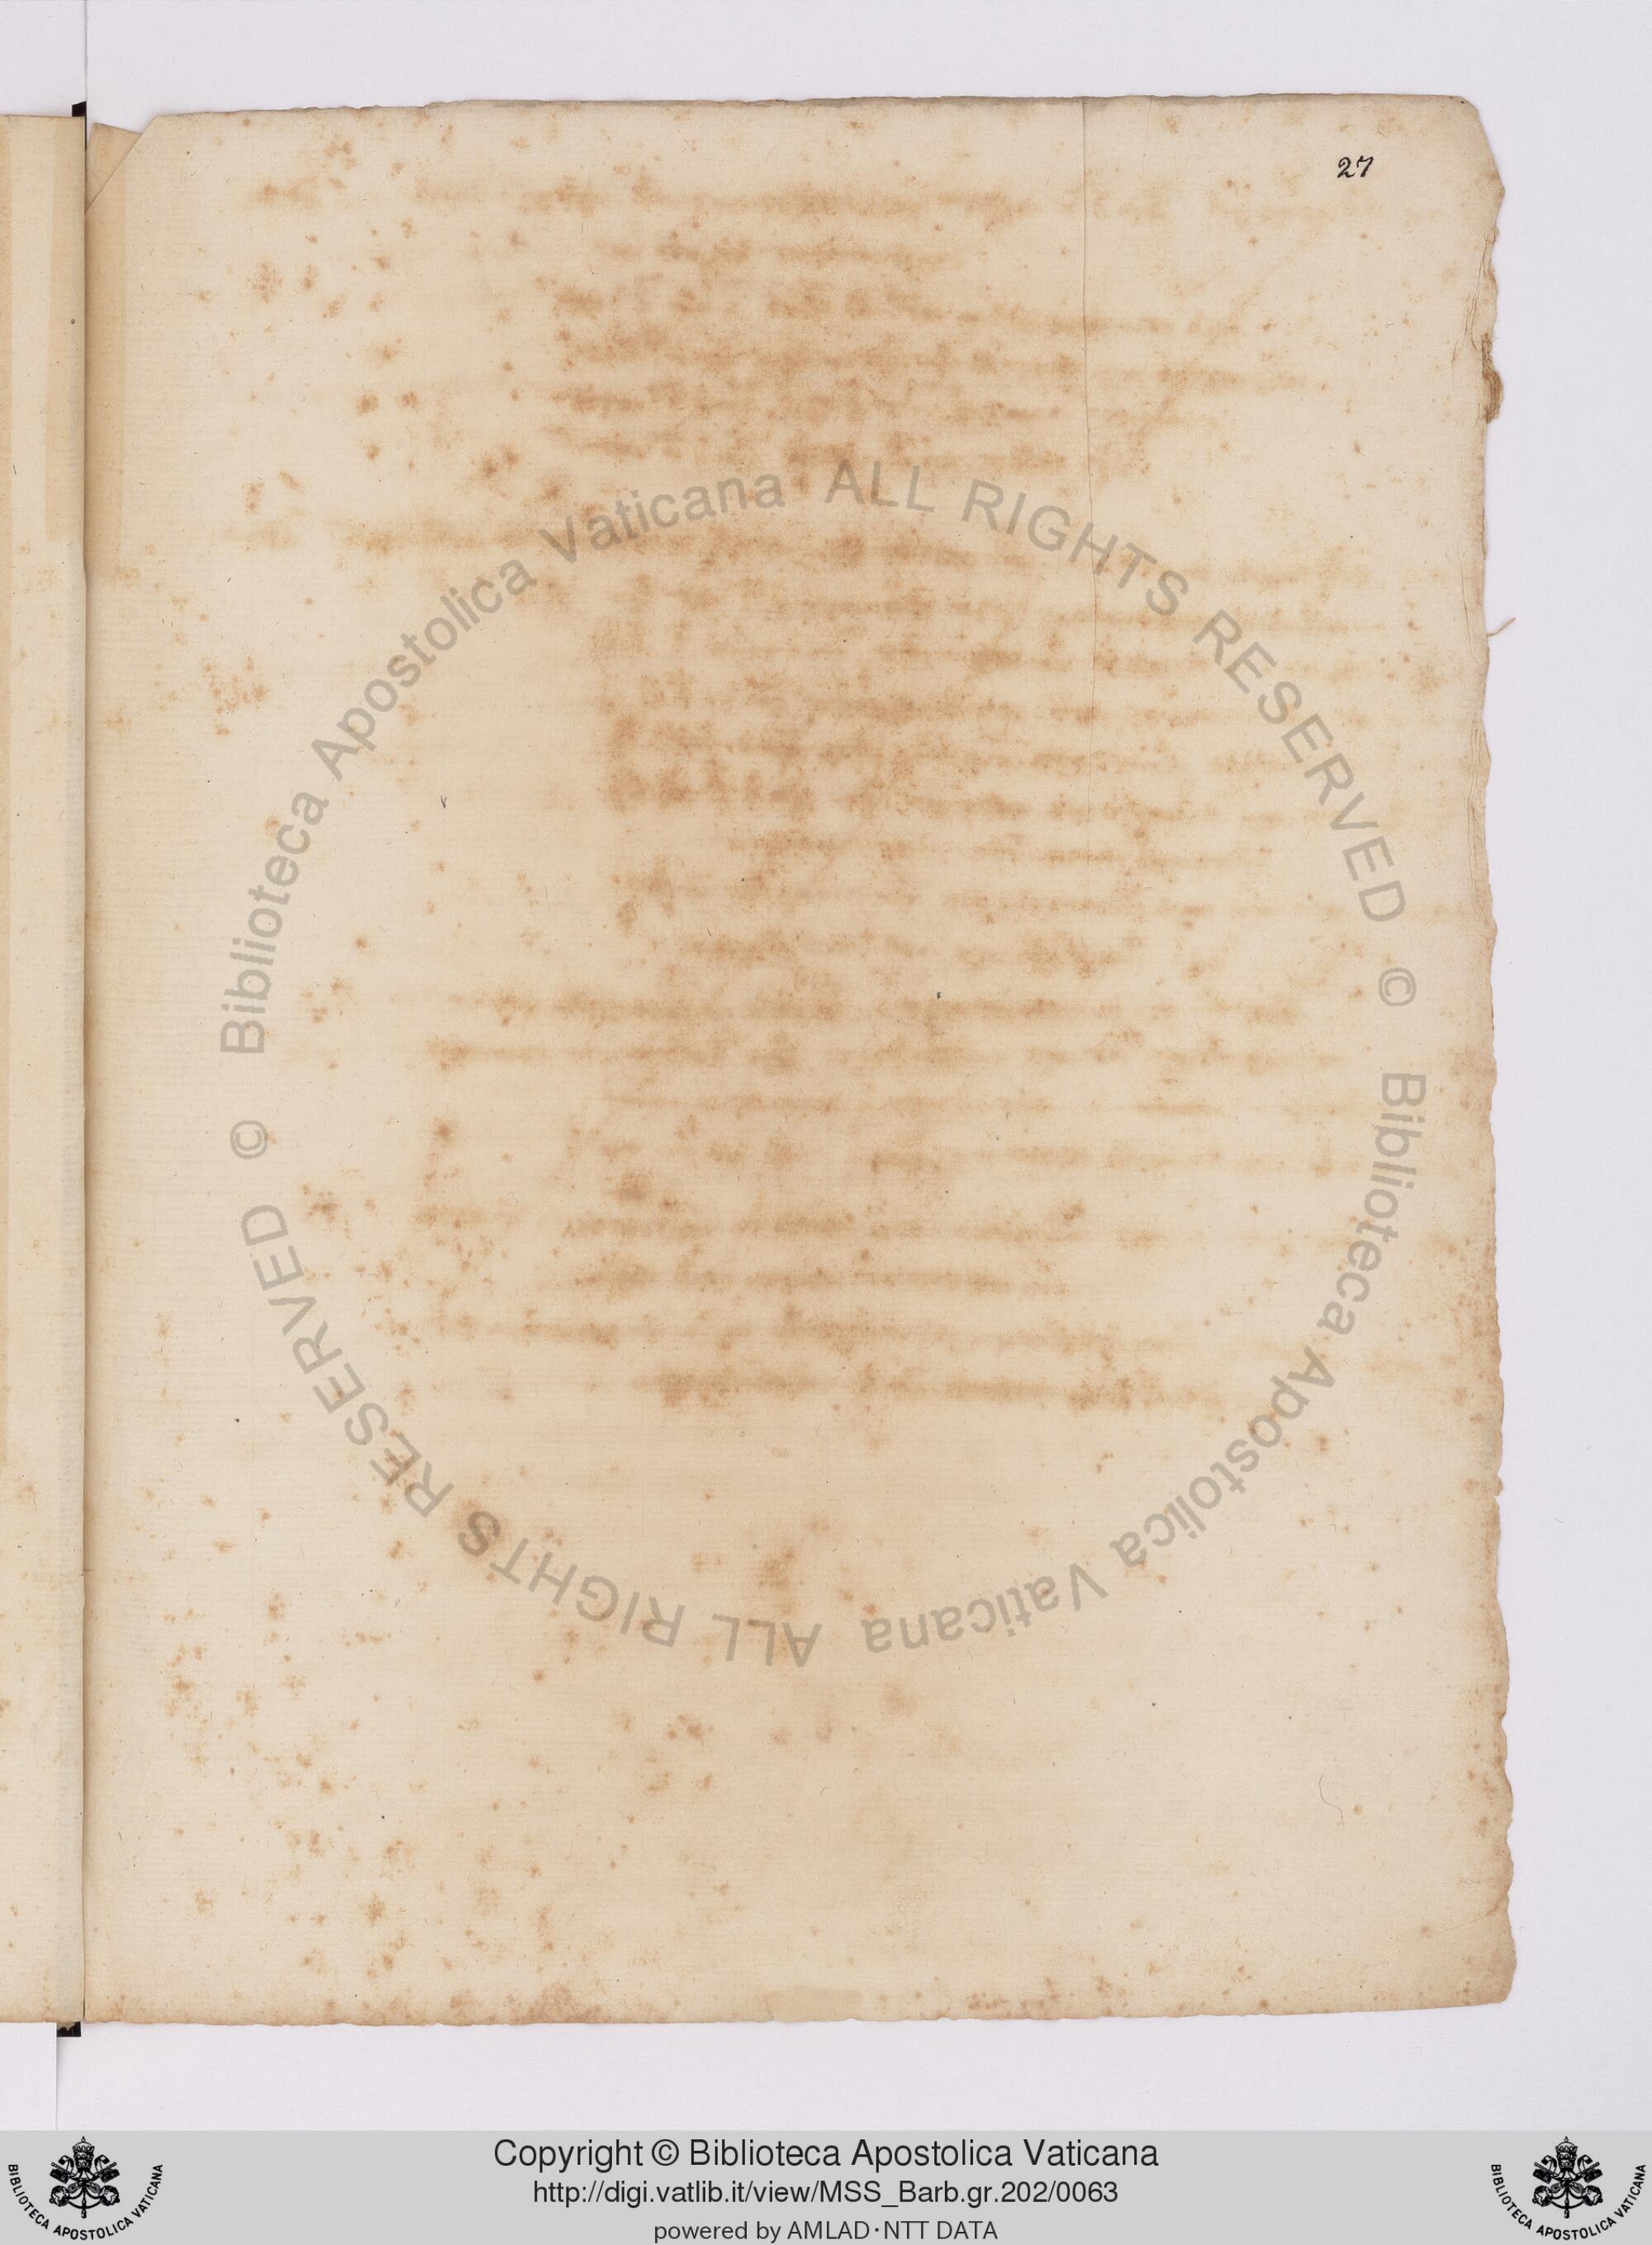 27
© Biblioteca Apostolica Vaticana ALL RIGHTS RESERVED
© Biblioteca Apostolica Vaticana ALL RIGHTS RESERVED
BIBLIOTECA APOSTOLICA VATICANA
Copyright © Biblioteca Apostolica Vaticana
http://digi.vatlib.it/view/MSS_Barb.gr.202/0063
powered by AMLAD·NTT DATA
BIBLIOTECA APOSTOLICA VATICANA